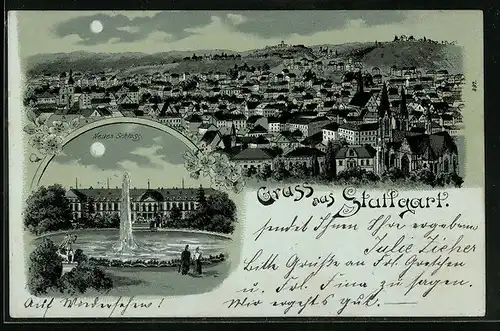 Neues Schloss.
Gruss aus Stuttgart.
sendet Ihnen Ihre ergebene
Julie Zicher
Bitte Grüße an Frl. Gretchen
u. Frl. Tina zu sagen.
Mir ergehts gut.
Auf Wiedersehen!